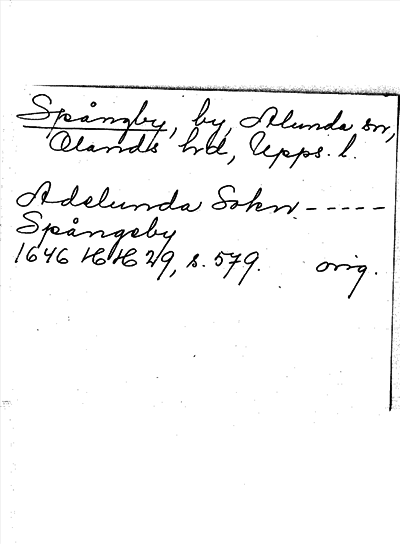 Spångby, by, Alunda sn,
Olands hd, Upps. l.
Adelunda Sokn -----
Spångeby
1646 HH 29, s. 579. orig.